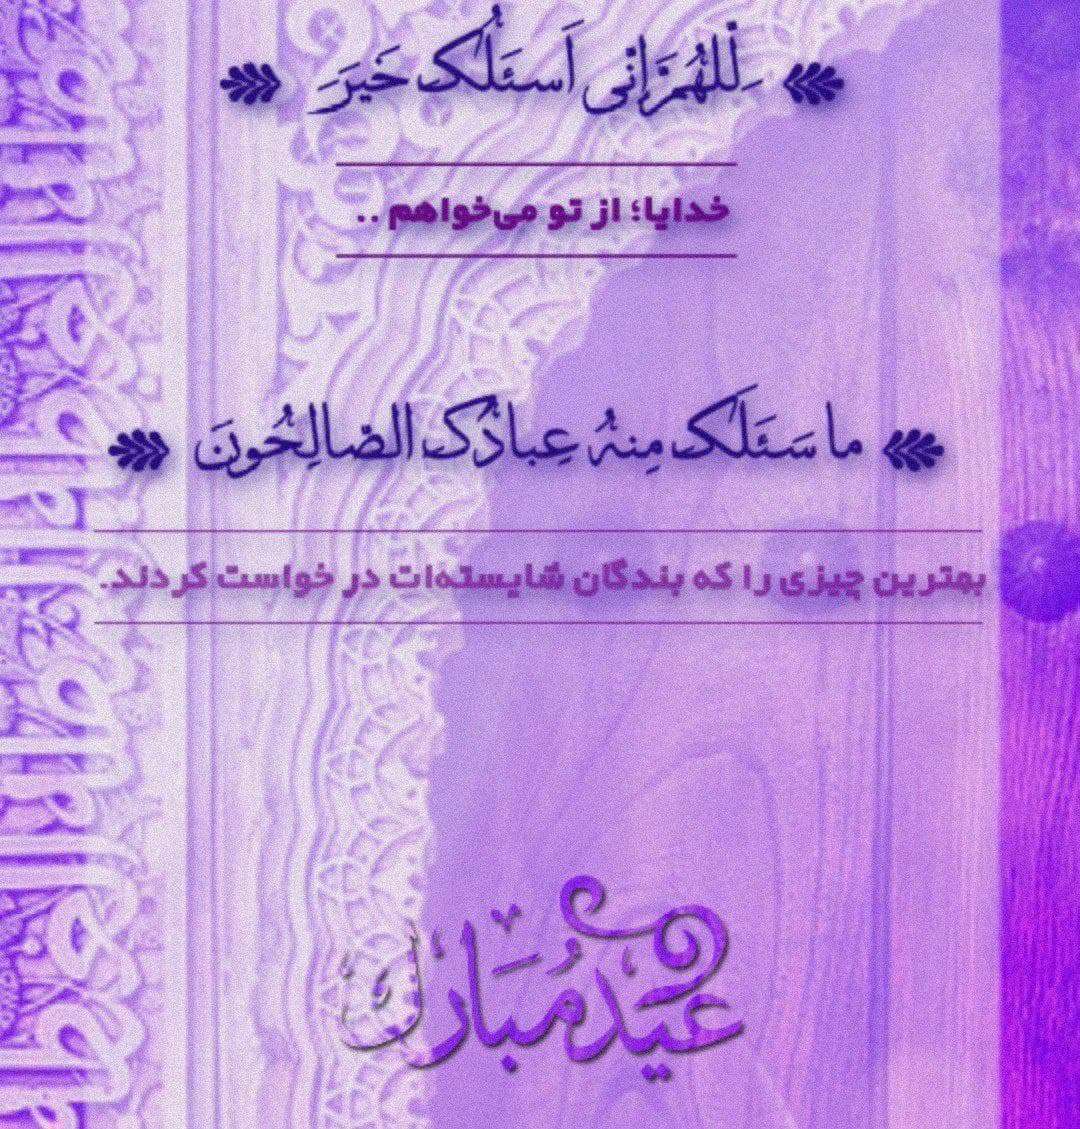 اَللّٰهُمَّ إِنّی اَسئَلُکَ خَیرَ
خدایا؛ از تو می‌خواهم ..
ما سَئَلَکَ مِنهُ عِبادُکَ الصالِحُونَ
بهترین چیزی را که بندگان شایسته‌ات در خواست کردند.
عید مُبارک